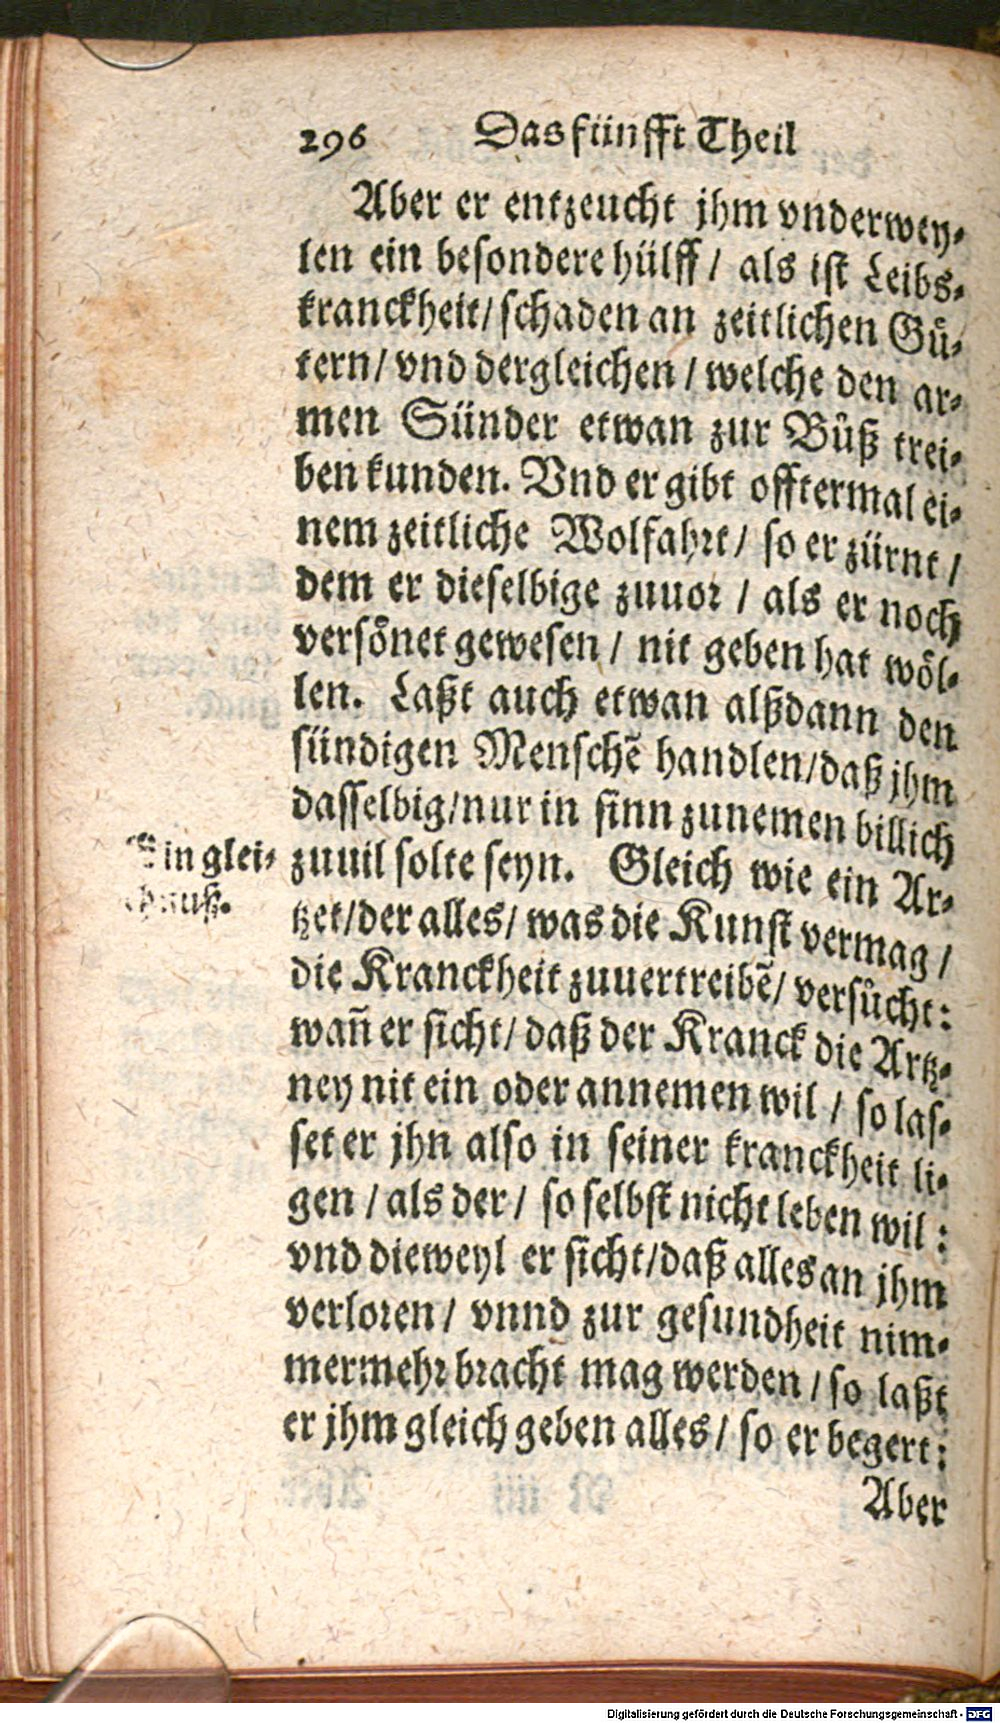 296 Das fünfft Theil
Aber er entzeucht jhm vnderwey-
len ein besondere hülff / als ist Leibs-
kranckheit / schaden an zeitlichen Guͤ-
tern / vnd dergleichen / welche den ar-
men Sünder etwan zur Buͦß trei-
ben kunden. Vnd er gibt offtermal ei-
nem zeitliche Wolfahrt / so er zürnt /
dem er dieselbige zuuor / als er noch
versoͤnet gewesen / nit geben hat woͤl-
len. Laßt auch etwan alßdann den
sündigen Menschẽ handlen / daß jhm
dasselbig / nur in sinn zunemen billich
zuuil solte seyn. Gleich wie ein Ar-
tzet / der alles / was die Kunst vermag /
die Kranckheit zuuertreibẽ / versuͦcht:
wañ er sicht / daß der Kranck die Artz-
ney nit ein oder annemen wil / so las-
set er jhn also in seiner kranckheit li-
gen / als der / so selbst nicht leben wil:
vnd dieweyl er sicht / daß alles an jhm
verloren / vnnd zur gesundheit nim-
mermehr bracht mag werden / so laßt
er jhm gleich geben alles / so er begert:
Aber
Ein glei-
chnuß.
Digitalisierung gefördert durch die Deutsche Forschungsgemeinschaft - DFG